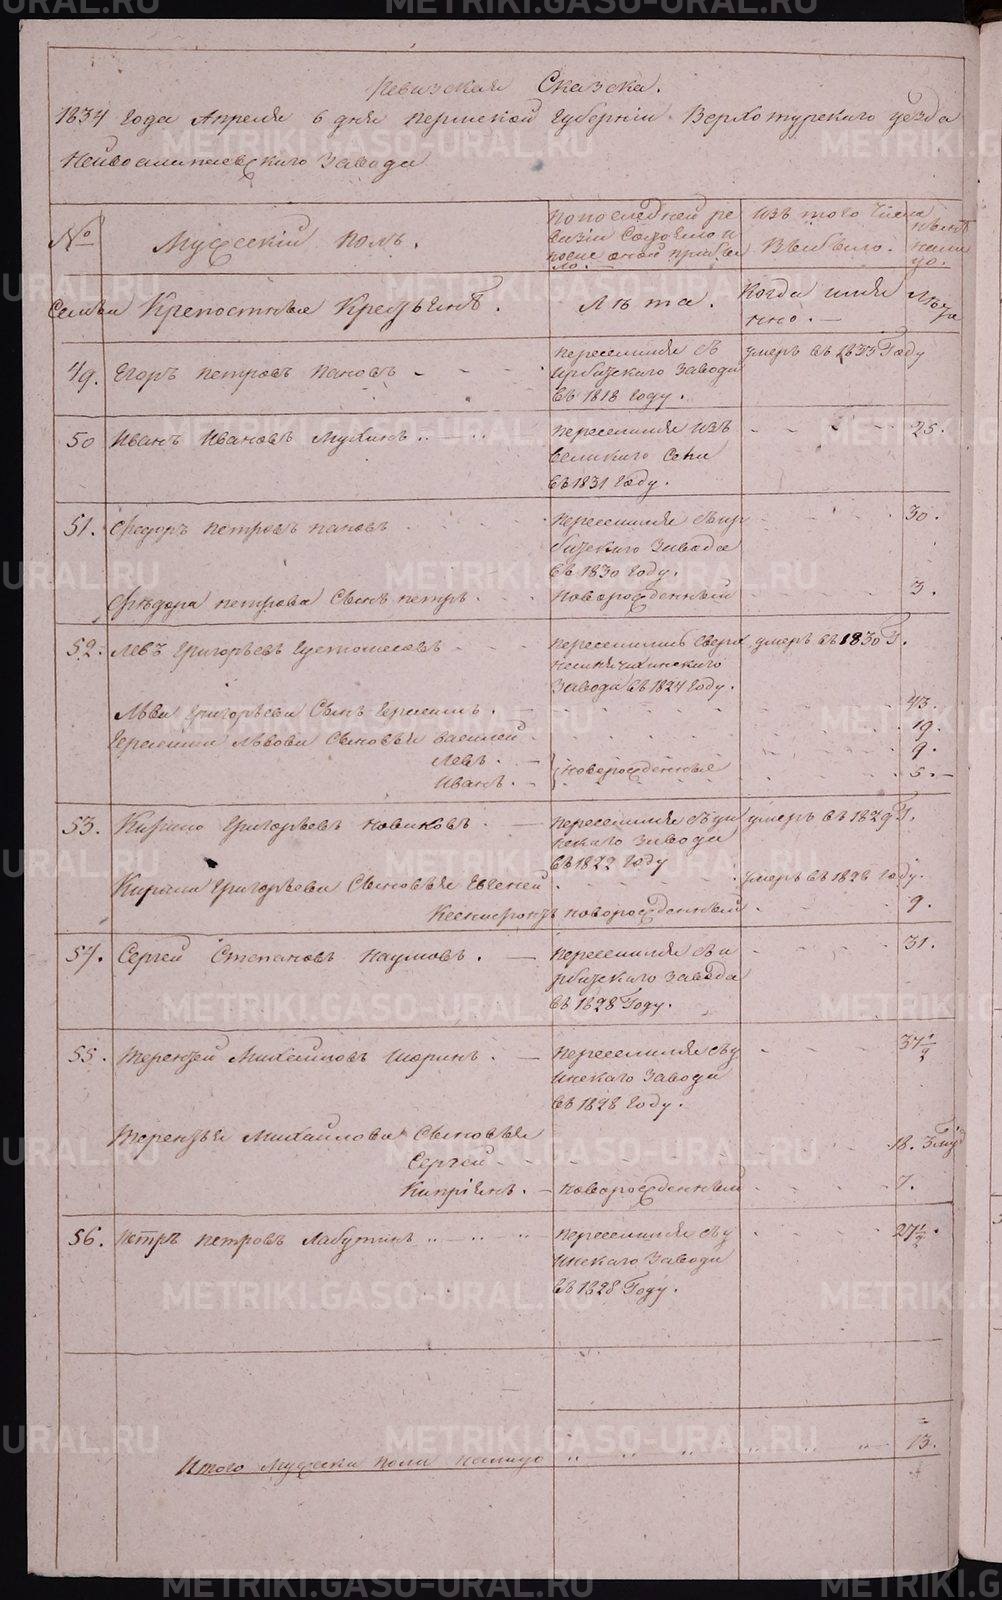 Ревизская Сказка.
1834 года Апреля 6 дня Пермской Губернiи Верхотурскаго уезда
Нейвоалапаевскаго Завода
№
Мужескiй полъ.
По последней ре
визiи состояло и
после оной прибы
ло.
Изъ того числа
Выбыло.
ныне
на ли
цо.
Семьи
Крепостные Крестьяне.
Лѣта.
Когда имян
нно.
Лѣта
49. Егоръ Петровъ Пановъ
переселился съ
Ирбитскаго завода
въ 1818 году.
умеръ въ 1833 Году
50 Иванъ Ивановъ Мухинъ
переселился изъ
великаго села
въ 1831 году.
25.
51. Федоръ Петровъ Пановъ
переселился съ ир
битскаго завода
въ 1830 году.
30.
Федора Петрова Сынъ Петръ
новорожденный
3.
52. Левъ Григорьевъ
переселились сверх
завода въ 1824 году.
умеръ въ 1830 Г.
Льва Григорьева Сынъ Герасимъ.
43.
Герасима Львова Сыновья Василей
19.
Левъ.
9.
Иванъ.
новорожденные
5.
53. Кирило Григорьевъ Новиковъ
переселился съ уи
нскаго завода
въ 1822 году
умеръ въ 1829 Г.
Кирила Григорьева Сыновья Евгеней
умеръ въ 1828 году.
Ксенофонтъ новорожденный
9.
54. Сергей Степановъ Наумовъ.
переселился съ и
рбитскаго завода
въ 1828 Году.
31.
55. Терентей Михайловъ Шоринъ.
переселился съ у
инскаго завода
въ 1828 году.
37 1/2
Терентья Михайлова Сыновья
Сергей
18.
Кипрiянъ. новорожденный
7.
56. Петръ Петровъ Лабутинъ
переселился съ у
инскаго завода
въ 1828 Году.
27 1/2.
Итого мужеска пола налицо
13.
METRIKI.GASO-URAL.RU